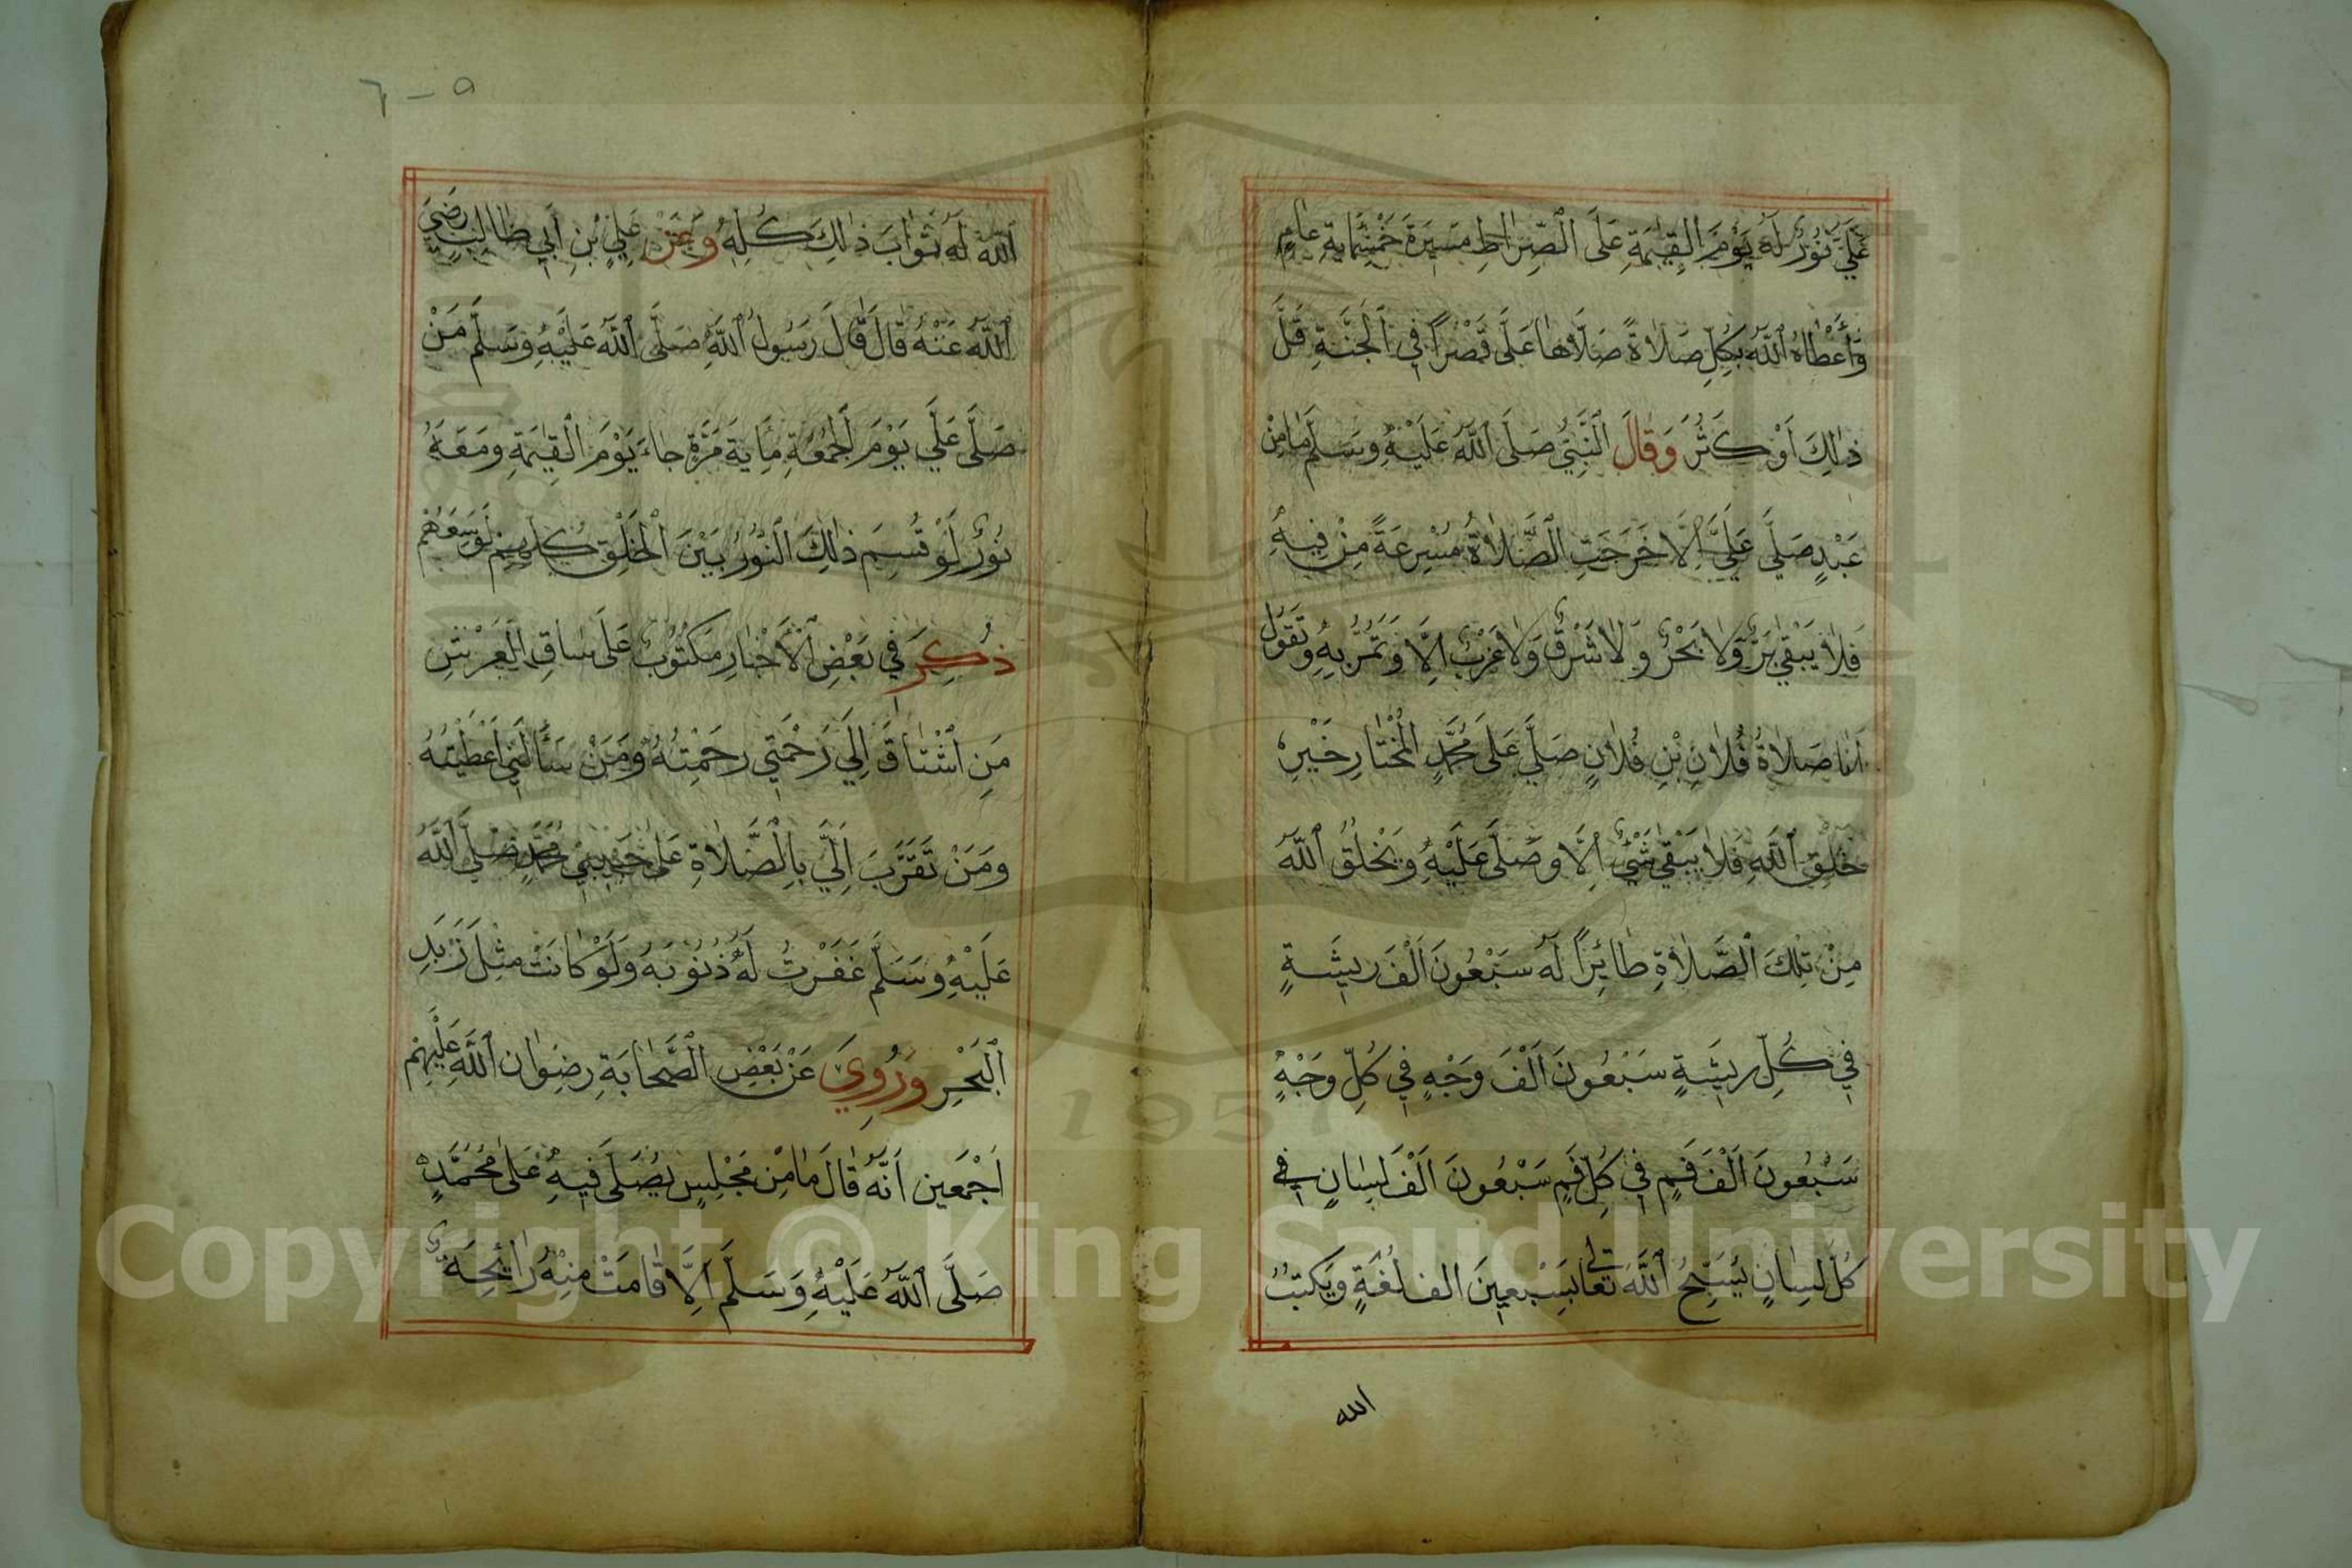 عَلَيَّ نُوْرٌ لَهُ يَوْمَ الْقِيٰمَةِ عَلَى الصِّرَاطِ مَسِيْرَةَ خَمْسُمِايَةِ عَامٍ
وَأَعْطَاهُ اللّٰهُ بِكُلِّ صَلَاةً صَلَّاهَا عَلَى قَصْرًا فِي الْجَنَّةِ قَلَّ
ذٰلِكَ اَوْ كَثُرَ وَقَالَ النَّبِيُّ صَلَى اللّٰهُ عَلَيْهِ وَسَلَّمَ مَا مِنْ
عَبْدٍ صَلَّى عَلَيَّ اِلَّا خَرَجَتِ الصَّلَاةُ مُسْرِعَةً مِنْ فِيهِ
فَلَا يَبْقٰي بَرٌّ وَلَا بَحْرٌ وَلَا شَرْقٌ وَلَا غَرْبٌ اِلَّا وَتَمُرُّ بِهِ وَتَقُوْلُ
اَنَا صَلَاةُ فُلَانِ بْنِ فُلَانٍ صَلَّي عَلَى مُحَمَّدٍ الْمُخْتَارِ خَيْرِ
خَلْقِ اللّٰهِ فَلَا يَبْقٰي شَيْءٌ اِلَّا وصَلَّى عَلَيْهِ وَيَخْلُقُ اللّٰهُ
مِنْ تِلْكَ الصَّلَاةِ طَائِرًا لَهُ سَبْعُونَ اَلْفَ رِيشَةٍ
فِي كُلِّ رِيشَةٍ سَبْعُونَ اَلْفَ وَجْهٍ فِي كُلِّ وَجْهٍ
سَبْعُونَ اَلْفَ فَمٍ فِي كُلِّ فَمٍ سَبْعُونَ اَلْفَ لِسَانٍ فِي
كُلِّ لِسَانٍ يُسَبِّحُ اللّٰهَ تعالى بِسَبْعِينَ الف لُغَةٍ وَيَكْتُبُ
الله
٥-٦
اللّٰهُ لَهُ ثَوَابَ ذٰلِكَ كُلِّهِ وَعَنْ عَلِيِّ بْنِ اَبِي طَالِبٍ رَضِيَ
اللّٰهُ عَنْهُ قَالَ قَالَ رَسُولُ اللّٰهِ صَلَّى اللّٰهُ عَلَيْهِ وَسَلَّمَ مَنْ
صَلَّى عَلَي يَوْمَ الْجُمُعَةِ مِايَةَ مَرَّةٍ جَاءَ يَوْمَ الْقِيٰمَةِ وَمَعَهُ
نُوْرٌ لَوْ قُسِمَ ذٰلِكَ النُّوْرُ بَيْنَ الْخَلْقِ كُلِّهِمْ لَوَسَعَهُمْ
ذُكِرَ فِي بَعْضِ الْاَخْبَارِ مَكْتُوْبٌ عَلَى سَاقِ الْعَرْشِ
مَنِ اشْتَاقَ اِلَي رَحْمَتِي رَحَمْتُهُ وَمَنْ سَأَلَنِي اَعْطَيْتُهُ
وَمَنْ تَقَرَّبَ اِلَيَّ بِالصَّلَاةِ عَلَى حَبِيبِي مُحَمَّدٍ صَلَّى اللّٰهُ
عَلَيْهِ وَسَلَّمَ غَفَرْتُ لَهُ ذُنُوْبَهُ وَلَوْ كَانَتْ مِثْلَ زَبَدِ
الْبَحْرِ وَرُوِيَ عَنْ بَعْضِ الصَّحَابَةِ رِضْوَان اللّٰهِ عَلَيْهِمْ
اَجْمَعِين اَنَّهُ قَالَ مَا مِنْ مَجْلِسٍ يُصَلَّى فِيهِ عَلَى مُحَمَّدٍ
صَلَّى اللّٰهُ عَلَيْهِ وَسَلَّمَ اِلَّا قَامَتْ مِنْهُ رَائِحَةٌ
1957
Copyright © King Saud University